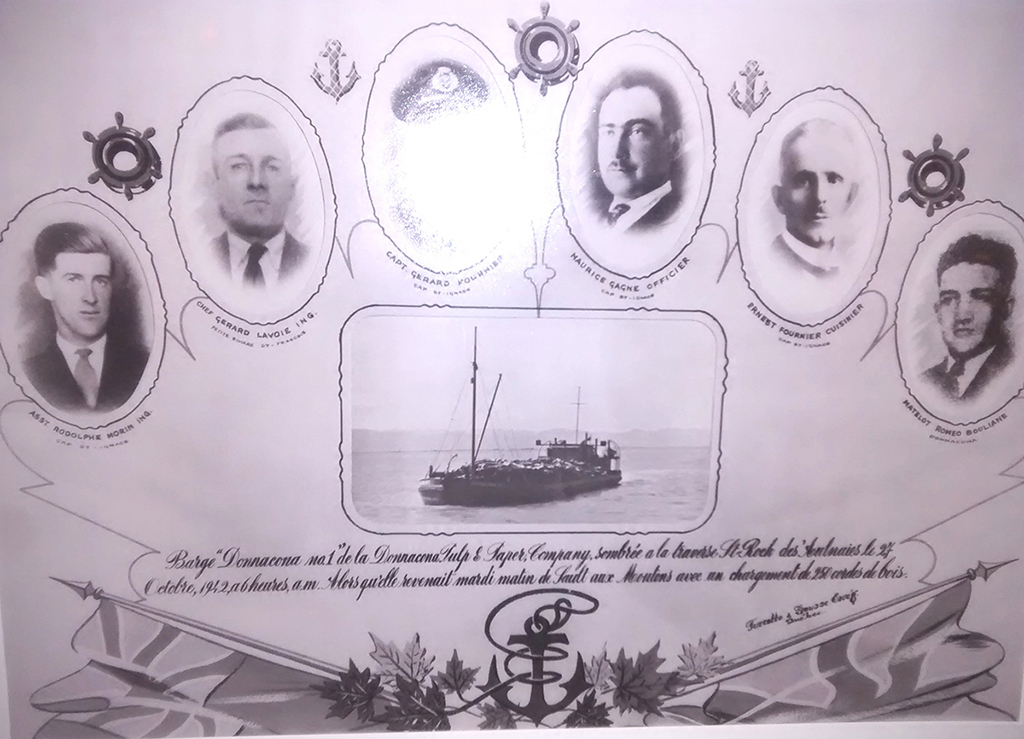 ASST RODOLPHE MORIN ING.
CAP ST-IGNACE
CHEF GERARD LAVOIE ING.
PETITE RIVIERE ST-FRANCOIS
CAPT. GERARD FOURNIER
CAP ST-IGNACE
MAURICE GAGNE OFFICIER
CAP ST-IGNACE
ERNEST FOURNIER CUISINIER
CAP ST-IGNACE
MATELOT ROMEO BOULIANE
DONNACONA
Barge "Donnacona no.1" de la Donnacona Pulp & Paper, Company, sombrée a la traverse, St-Roch des Aulnaies, le 27
Octobre, 1942, a 6 heures, a.m. Alors qu'elle revenait mardi matin de Sault aux Moutons avec un chargement de 250 cordes de bois.
Québec